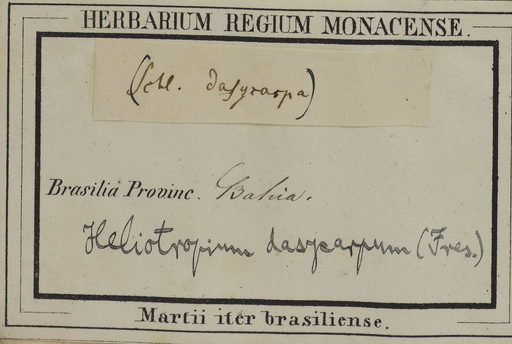 HERBARIUM REGIUM MONACENSE.
(Schl. dasycarpa)
Brasilia Provinc. Bahia.
Heliotropium dasycarpum (Fres.)
Martii iter brasiliense.